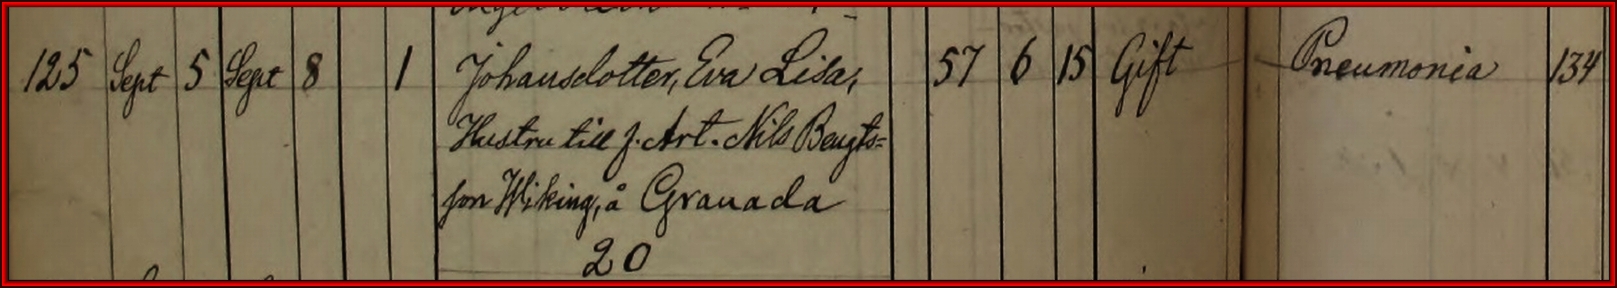 125 Sept 5 Sept 8 1 Johansdotter, Eva Lisa, 57 6 15 Gift Pneumonia 134
Hustru till f. Art. Nils Bengts=
son Wiking, å Granada
20